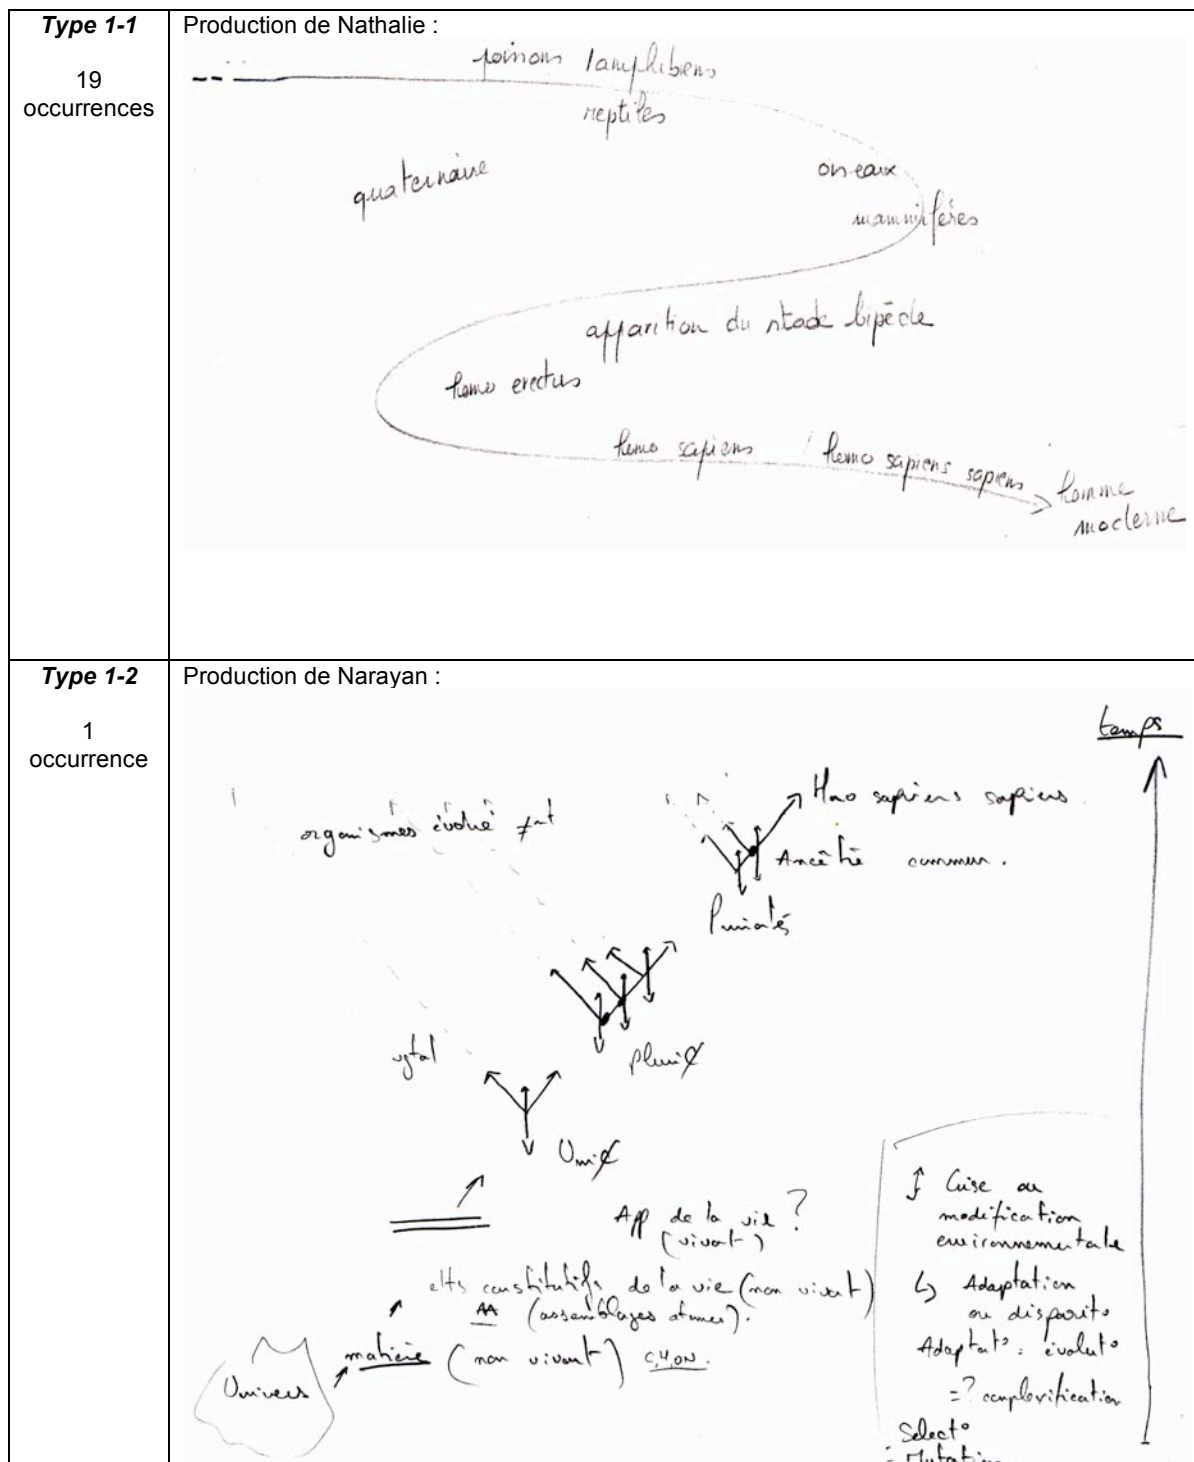 Type 1-1
19
occurrences
Production de Nathalie :
poissons / amphibiens
reptiles
quaternaire
oiseaux
mammifères
apparition du stade bipède
homo erectus
homo sapiens / homo sapiens sapiens
homme
moderne
Type 1-2
1
occurrence
Production de Narayan :
temps
Homo sapiens sapiens.
organismes évolué ≠nt
Ancêtre commun.
Primates
végtal
pluri¢
Uni¢
App de la vie ?
(vivant)
elts constitutifs de la vie (non vivant)
AA (assemblages atomes).
matière (non vivant) C,H,O,N.
Univers
Crise ou
modification
environnementale
↳ Adaptation
ou disparit°
Adaptat° : évolut°
=? complexification
Select°
= Mutation